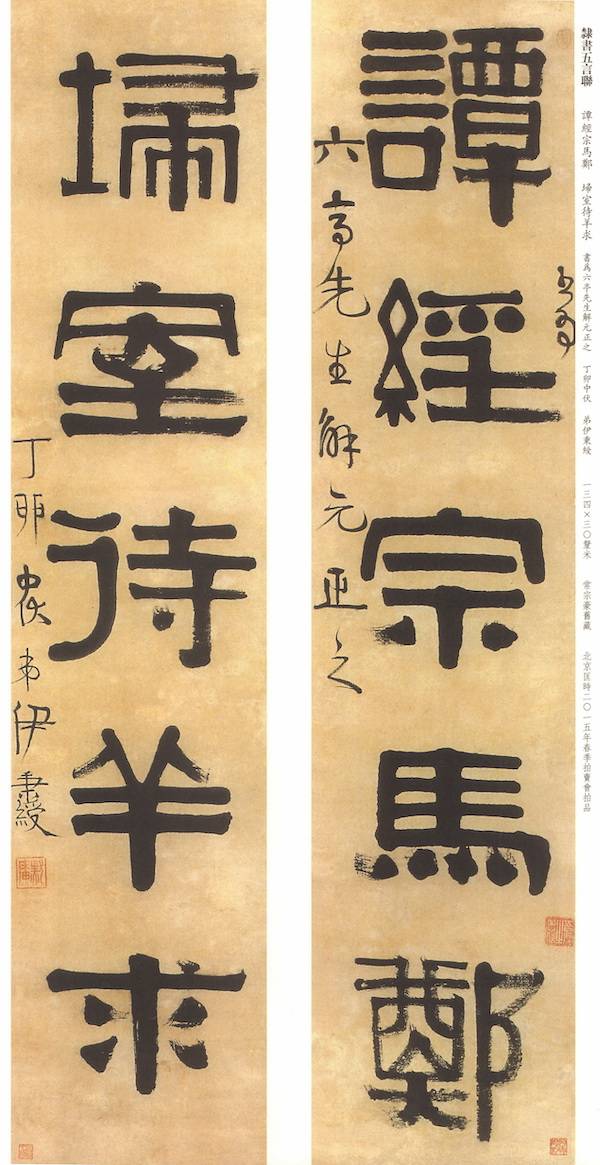 隸書五言聯 譚經宗馬鄭 埽室待羊求 書為六亭先生解元正之 丁卯中伏 弟伊秉綬 一三四×三〇釐米 常宗豪舊藏 北京匡時二〇一五年春季拍賣會拍品
書為
譚經宗馬鄭
六亭先生解元正之
埽室待羊求
丁卯中伏弟伊秉綬